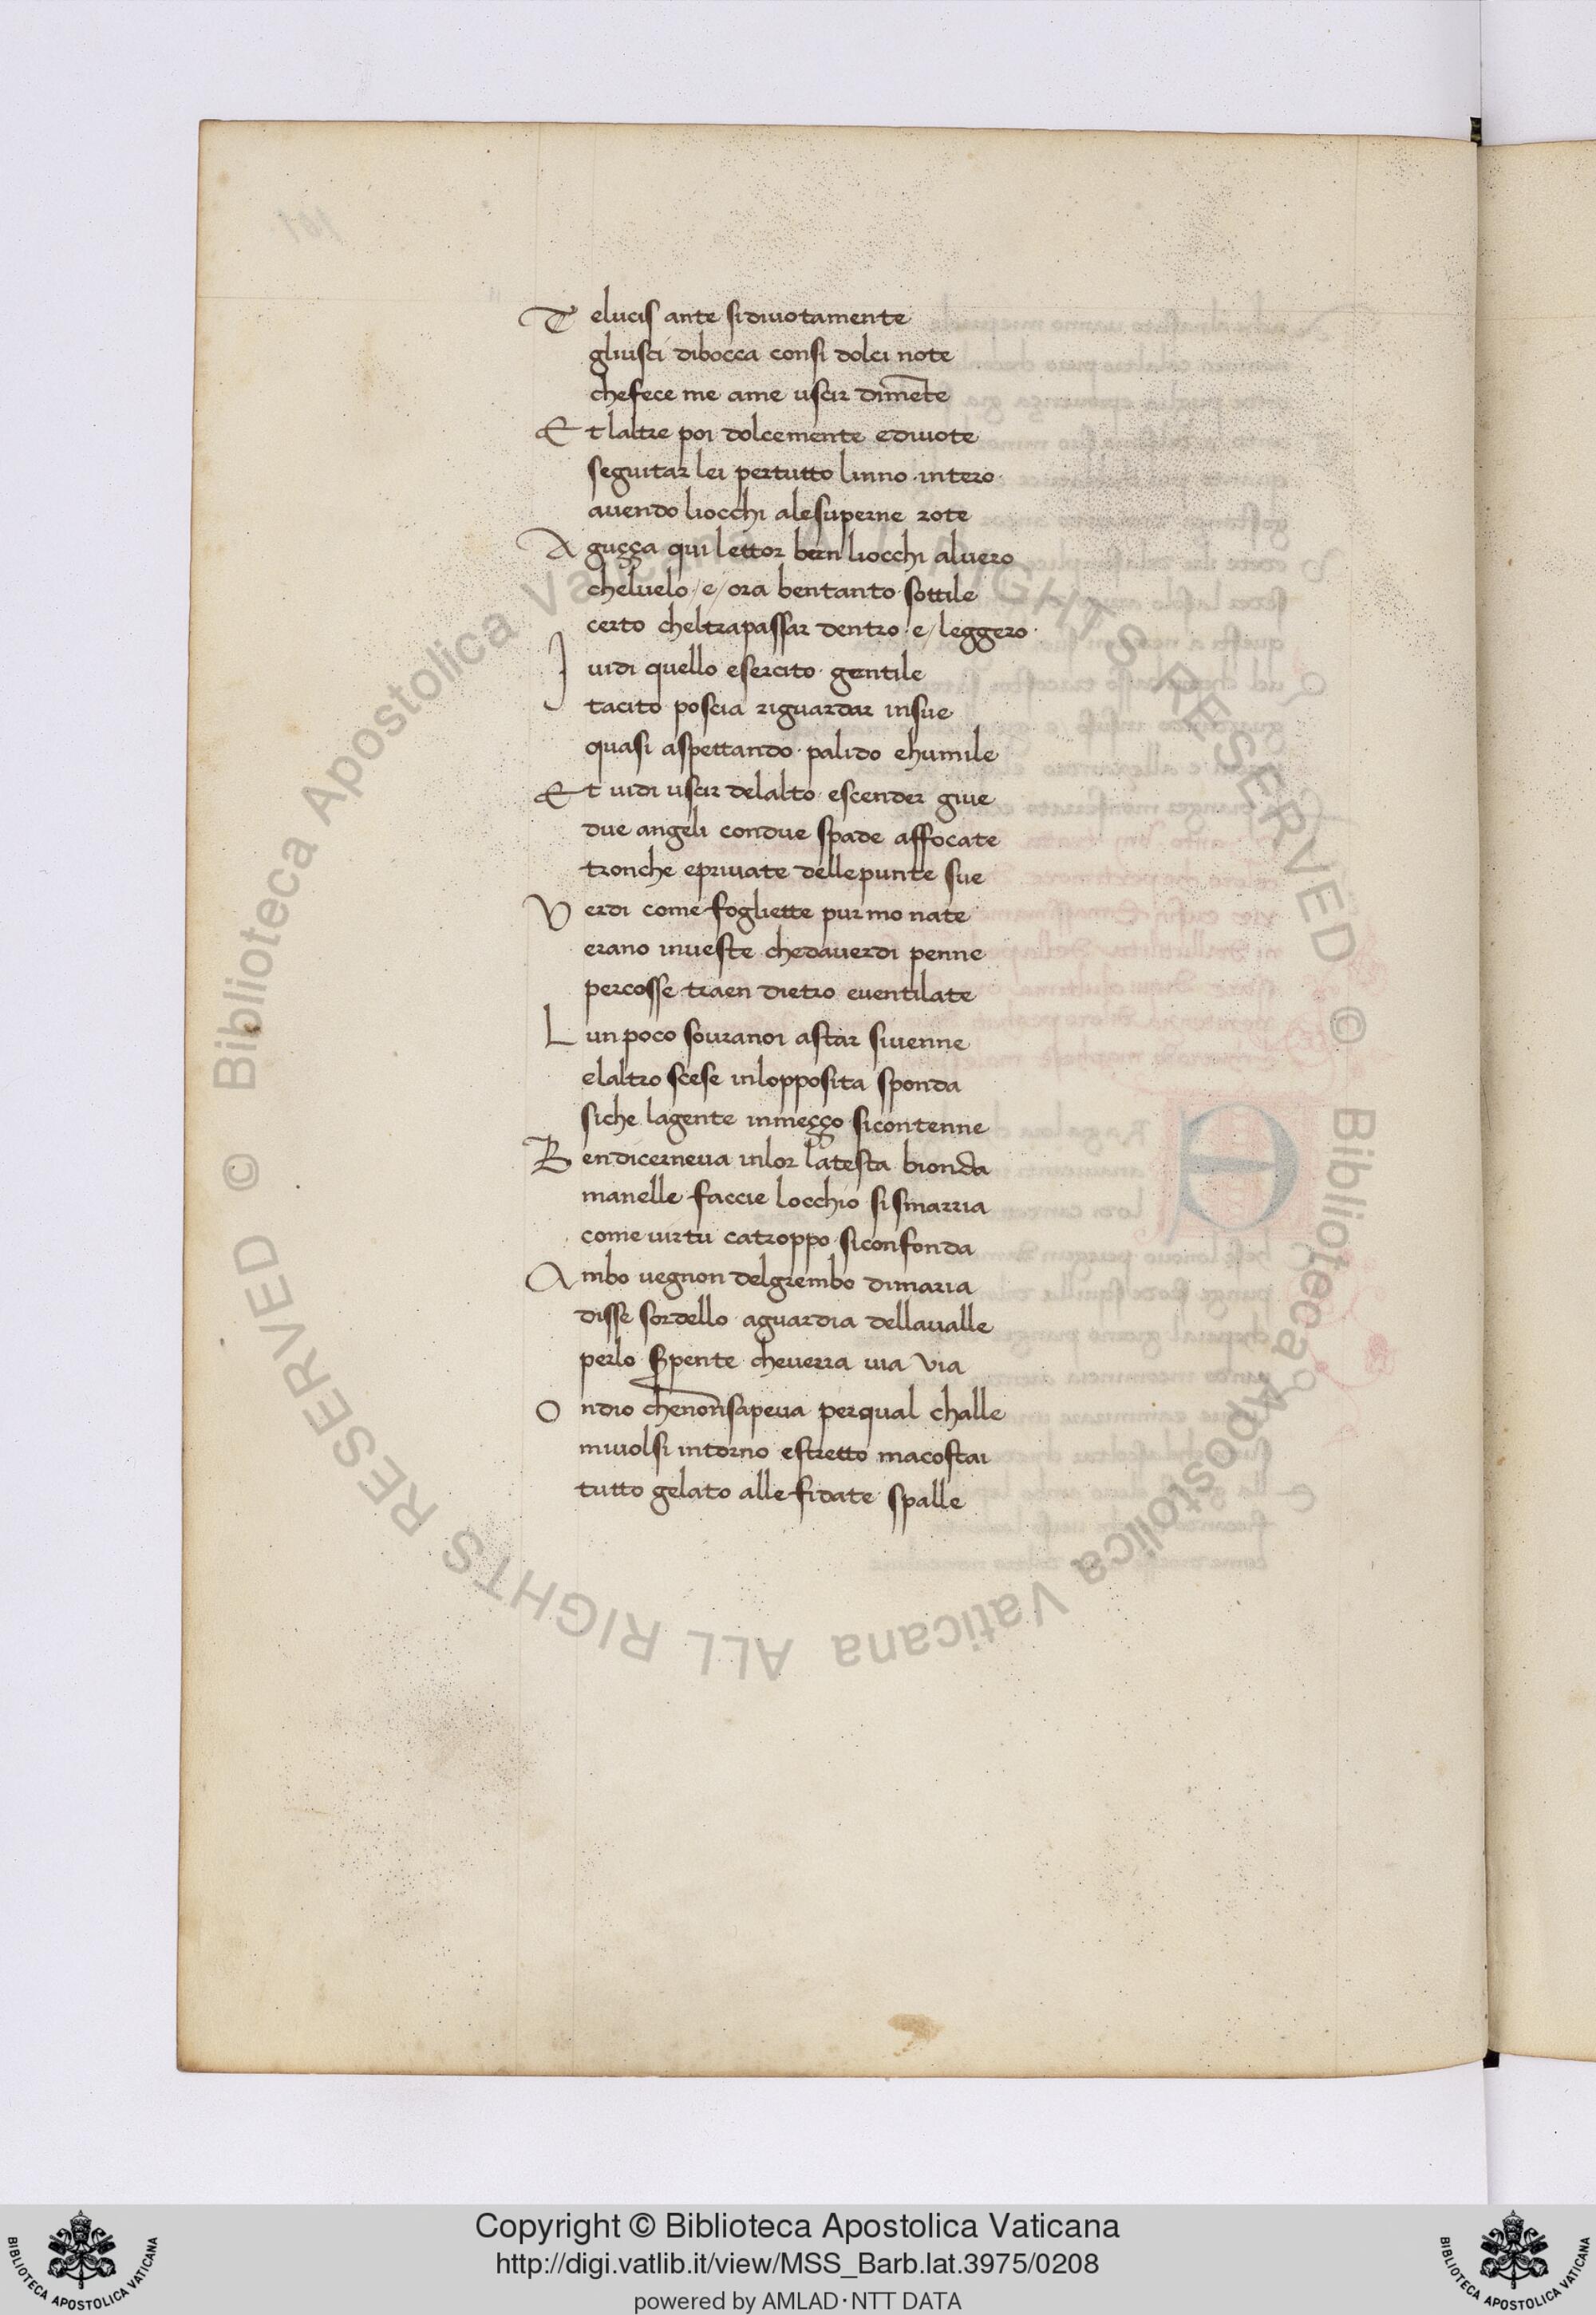 T elucis ante sidivotamente
gliusci dibocca consi dolci note
chefece me ame uscir dimēte
E t laltre poi dolcemente edivote
seguitar lei pertutto linno intero
avendo liocchi alesuperne rote
A guçça qui lettor ben liocchi alvero
chelvelo /e/ ora bentanto sottile
certo cheltrapassar dentro e/ leggero
I vidi quello esercito gentile
tacito poscia riguardar insue
quasi aspettando palido ehumile
E t vidi uscir delalto escender giue
due angeli condue spade affocate
tronche eprivate dellepunte sue
V erdi come fogliette pur mo nate
erano investe chedaverdi penne
percosse traen dietro eventilate
L un poco sovranoi astar sivenne
elaltro scese inlopposita sponda
siche lagente inmeçço sicontenne
B endicerneva inlor latesta bionda
manelle faccie locchio sismarria
come virtu catroppo siconfonda
A mbo vegnon delgrembo dimaria
disse sordello aguardia dellavalle
perlo serpente cheverra via via
O ndio chenonsapeva perqual challe
mivolsi intorno estretto macostai
tutto gelato alle fidate spalle
© Biblioteca Apostolica Vaticana ALL RIGHTS RESERVED
© Biblioteca Apostolica Vaticana ALL RIGHTS RESERVED
Copyright © Biblioteca Apostolica Vaticana
http://digi.vatlib.it/view/MSS_Barb.lat.3975/0208
powered by AMLAD·NTT DATA
BIBLIOTECA APOSTOLICA VATICANA
BIBLIOTECA APOSTOLICA VATICANA